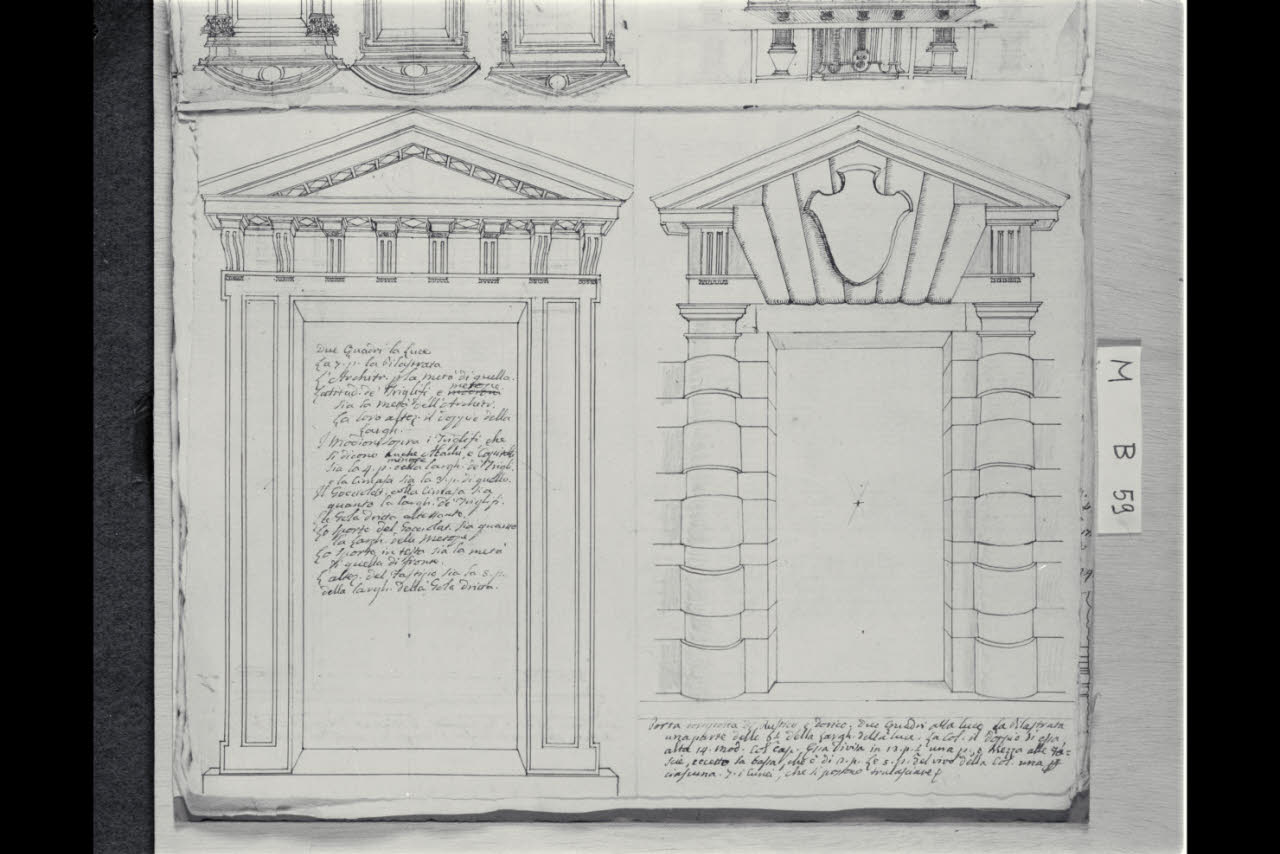 Due Quadri la Luce
La 7. p. la Pilastrata
L'Architr. p. la metà di quella.
Latitud. de Triglifi e metope
sia la metà dell'Archit.
La loro altez. il doppio della
largh.
I Modioni sopra i Triglifi, che
si dicono anche
sia la 4. p. della largh. de Trigl.
e la Cimasa sia la 3. p. di quello.
Il Gocciolat. colla Cimasa sia
quanto la largh. de Triglifi.
La Gola dritta altrettanto.
Lo Sporto del Gocciolat. sia quanto
la largh. delle Metope.
Lo Sporto in testa sia la metà
di quella di fronte.
L'altez. del Fastigio sia la 5. p.
della largh. della Gola dritta.
Porta composta di Rustico e Dorico. Due Quadri alla luce. La Pilastrata
una parte delle della Largh. della Luce. La Col. il Doppio di essa,
alta 14. mod. col cap. Essa divisa in 13. p. e una p. e mezza alle Fa-
scie, eccetto la bassa, che è di 2. p. Le 5. p. del vivo della Col. una p.
ciascuna. 7. i Cunei, che si possono tralasciare
M B 59